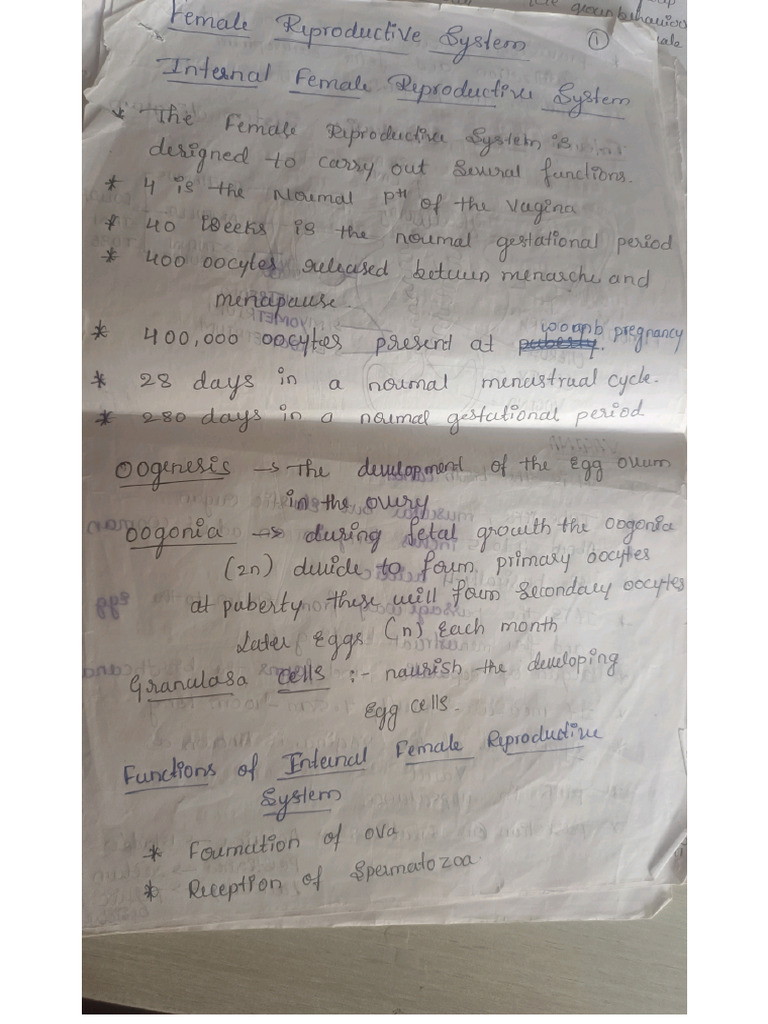 group behaviour
Female Reproductive System
1
Internal Female Reproductive System
* The Female Reproductive System is
designed to carry out Several functions.
* 4 is the Normal PH of the vagina
* 40 Weeks is the normal gestational period
* 400 oocytes released between menarche and
menapause.
* 400,000 oocytes present at puberty. pregnancy
* 28 days in a normal menustrual cycle.
* 280 days in a normal gestational period
Oogenesis → The development of the Egg ovum
in the overy
Oogonia → during fetal growth the oogonia
(2n) divide to form primary oocytes
at puberty these will form Secondary oocytes
Later Eggs (n) Each month
Granulasa cells :- naurish the developing
Egg cells.
Functions of Internal Female Reproductive
System
* Formation of ova
* Reception of Spermatozoa